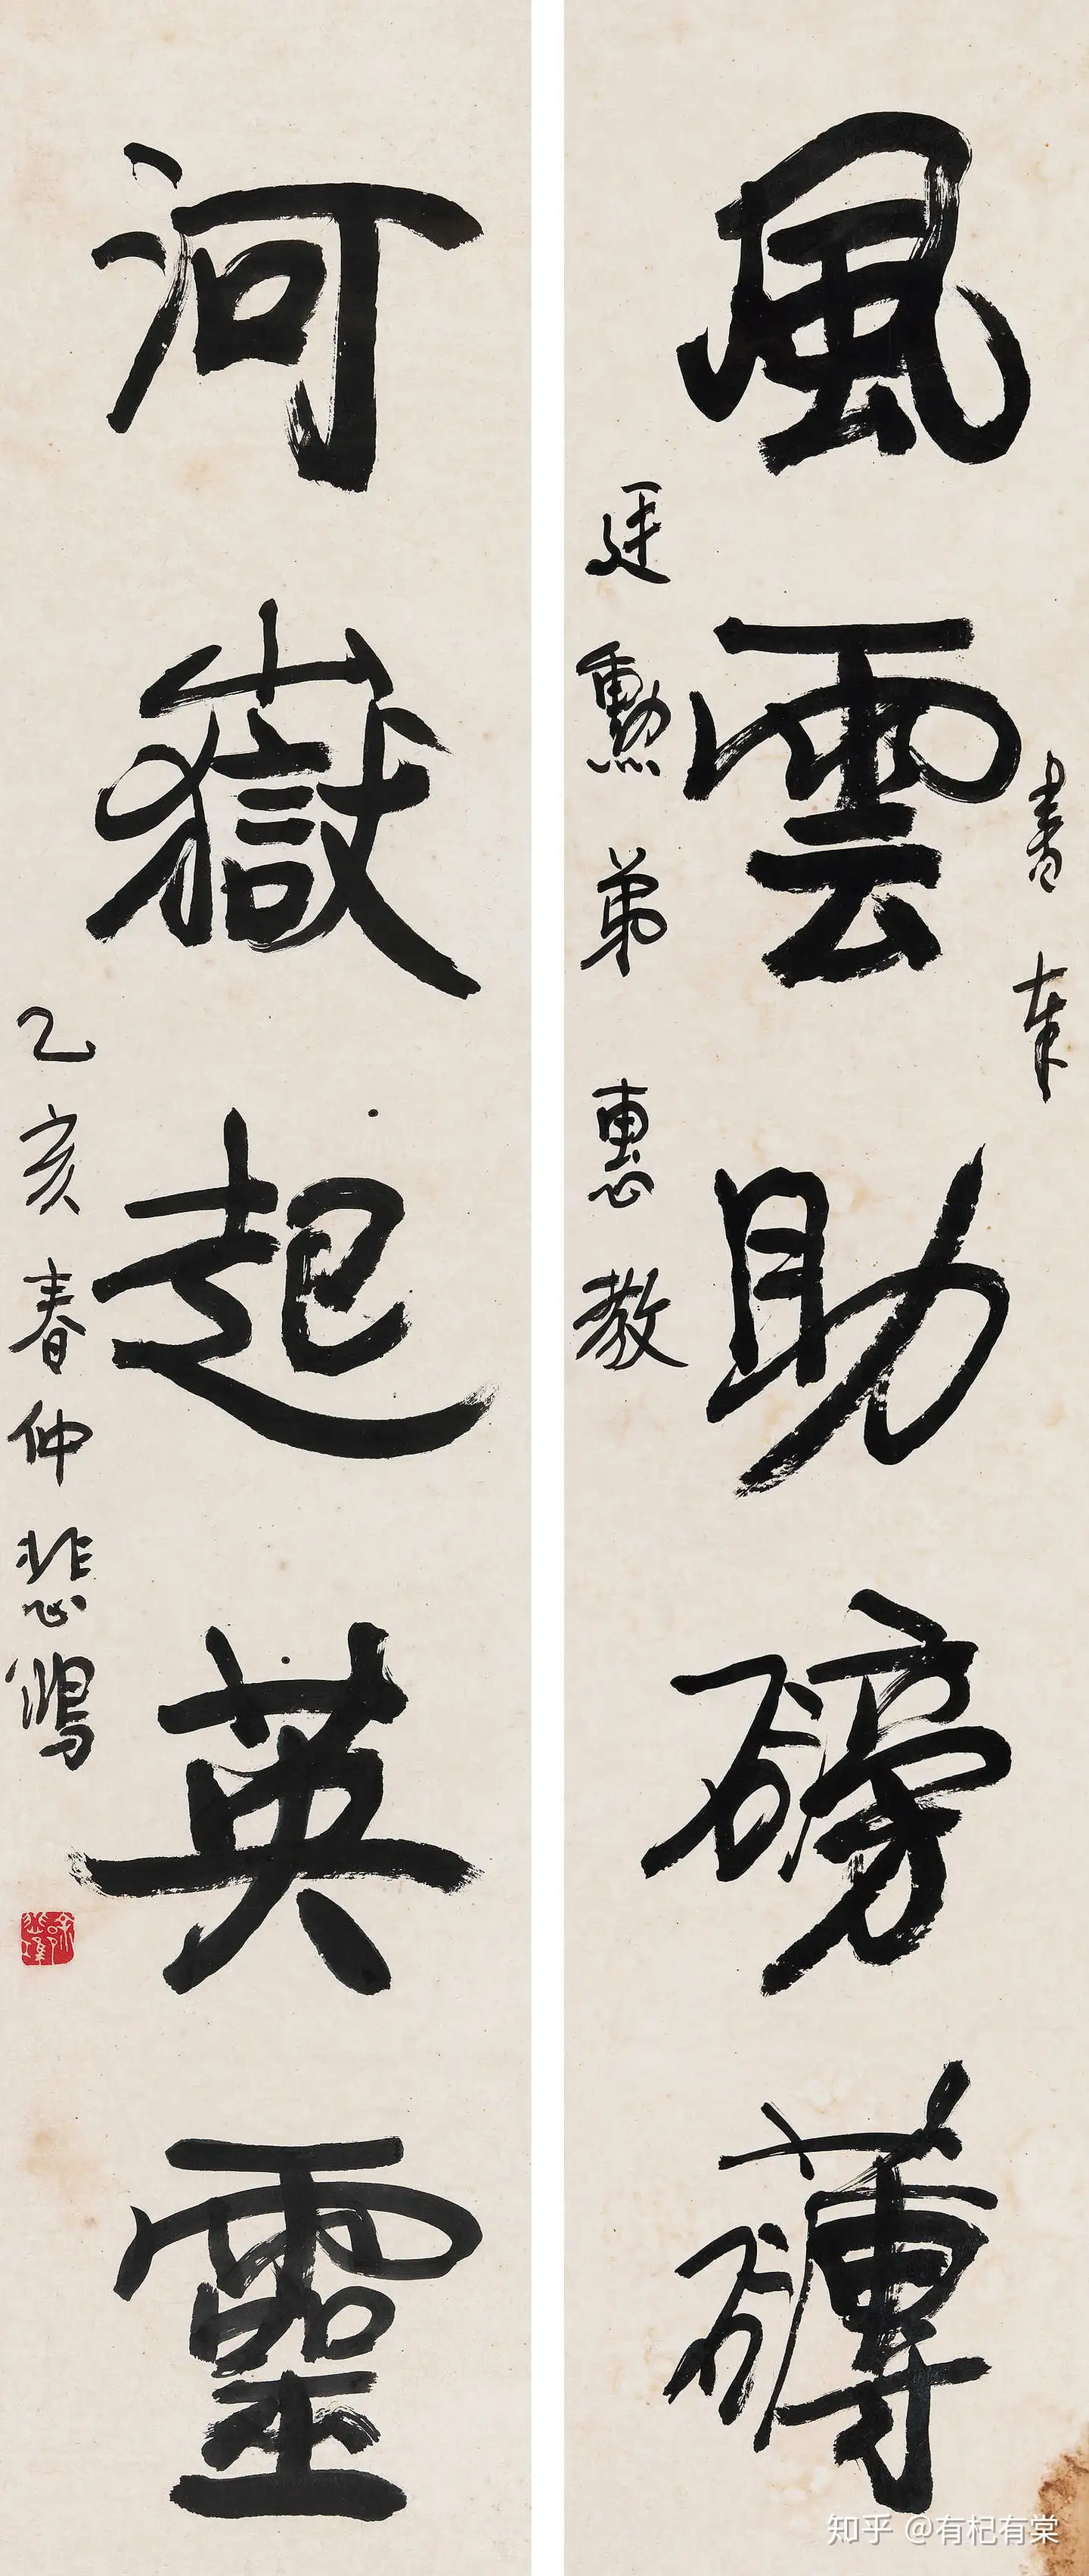 風雲助磅礴
書奉
廷勳弟惠教
河嶽起英靈
乙亥春仲悲鴻
知乎 @有杞有棠